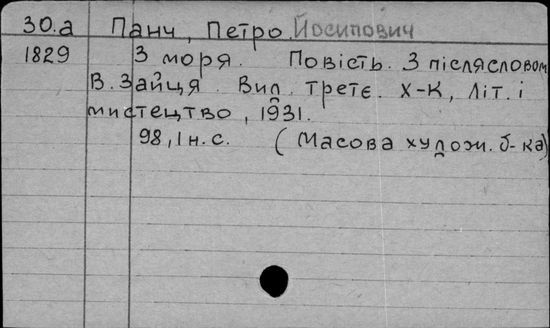 30.а Панч, Петро Йосипович
1829 З моря. Повість. З післясловом
В. Зайця. Вид. третє. Х-К, Літ. і
мистецтво, 1931.
98, 1 н. с. (Масова художн. б-ка)